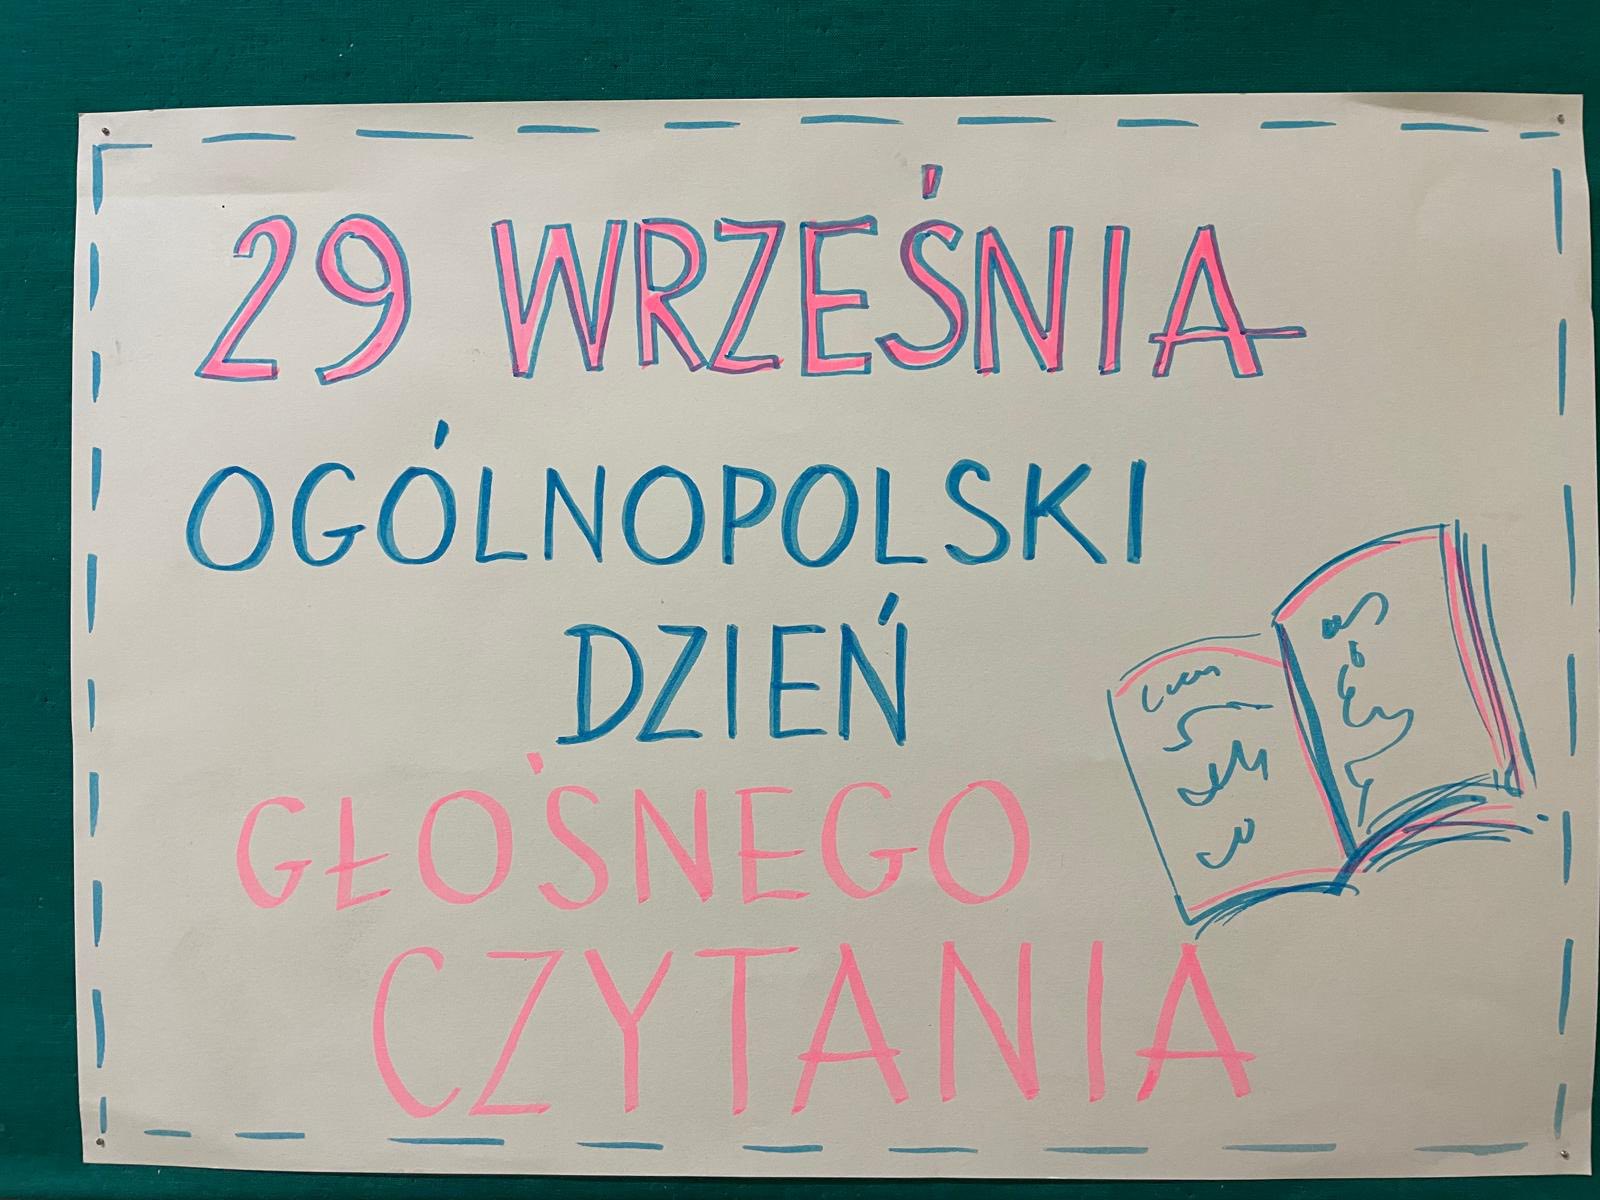 29 WRZEŚNIA
OGÓLNOPOLSKI
DZIEŃ
GŁOŚNEGO
CZYTANIA